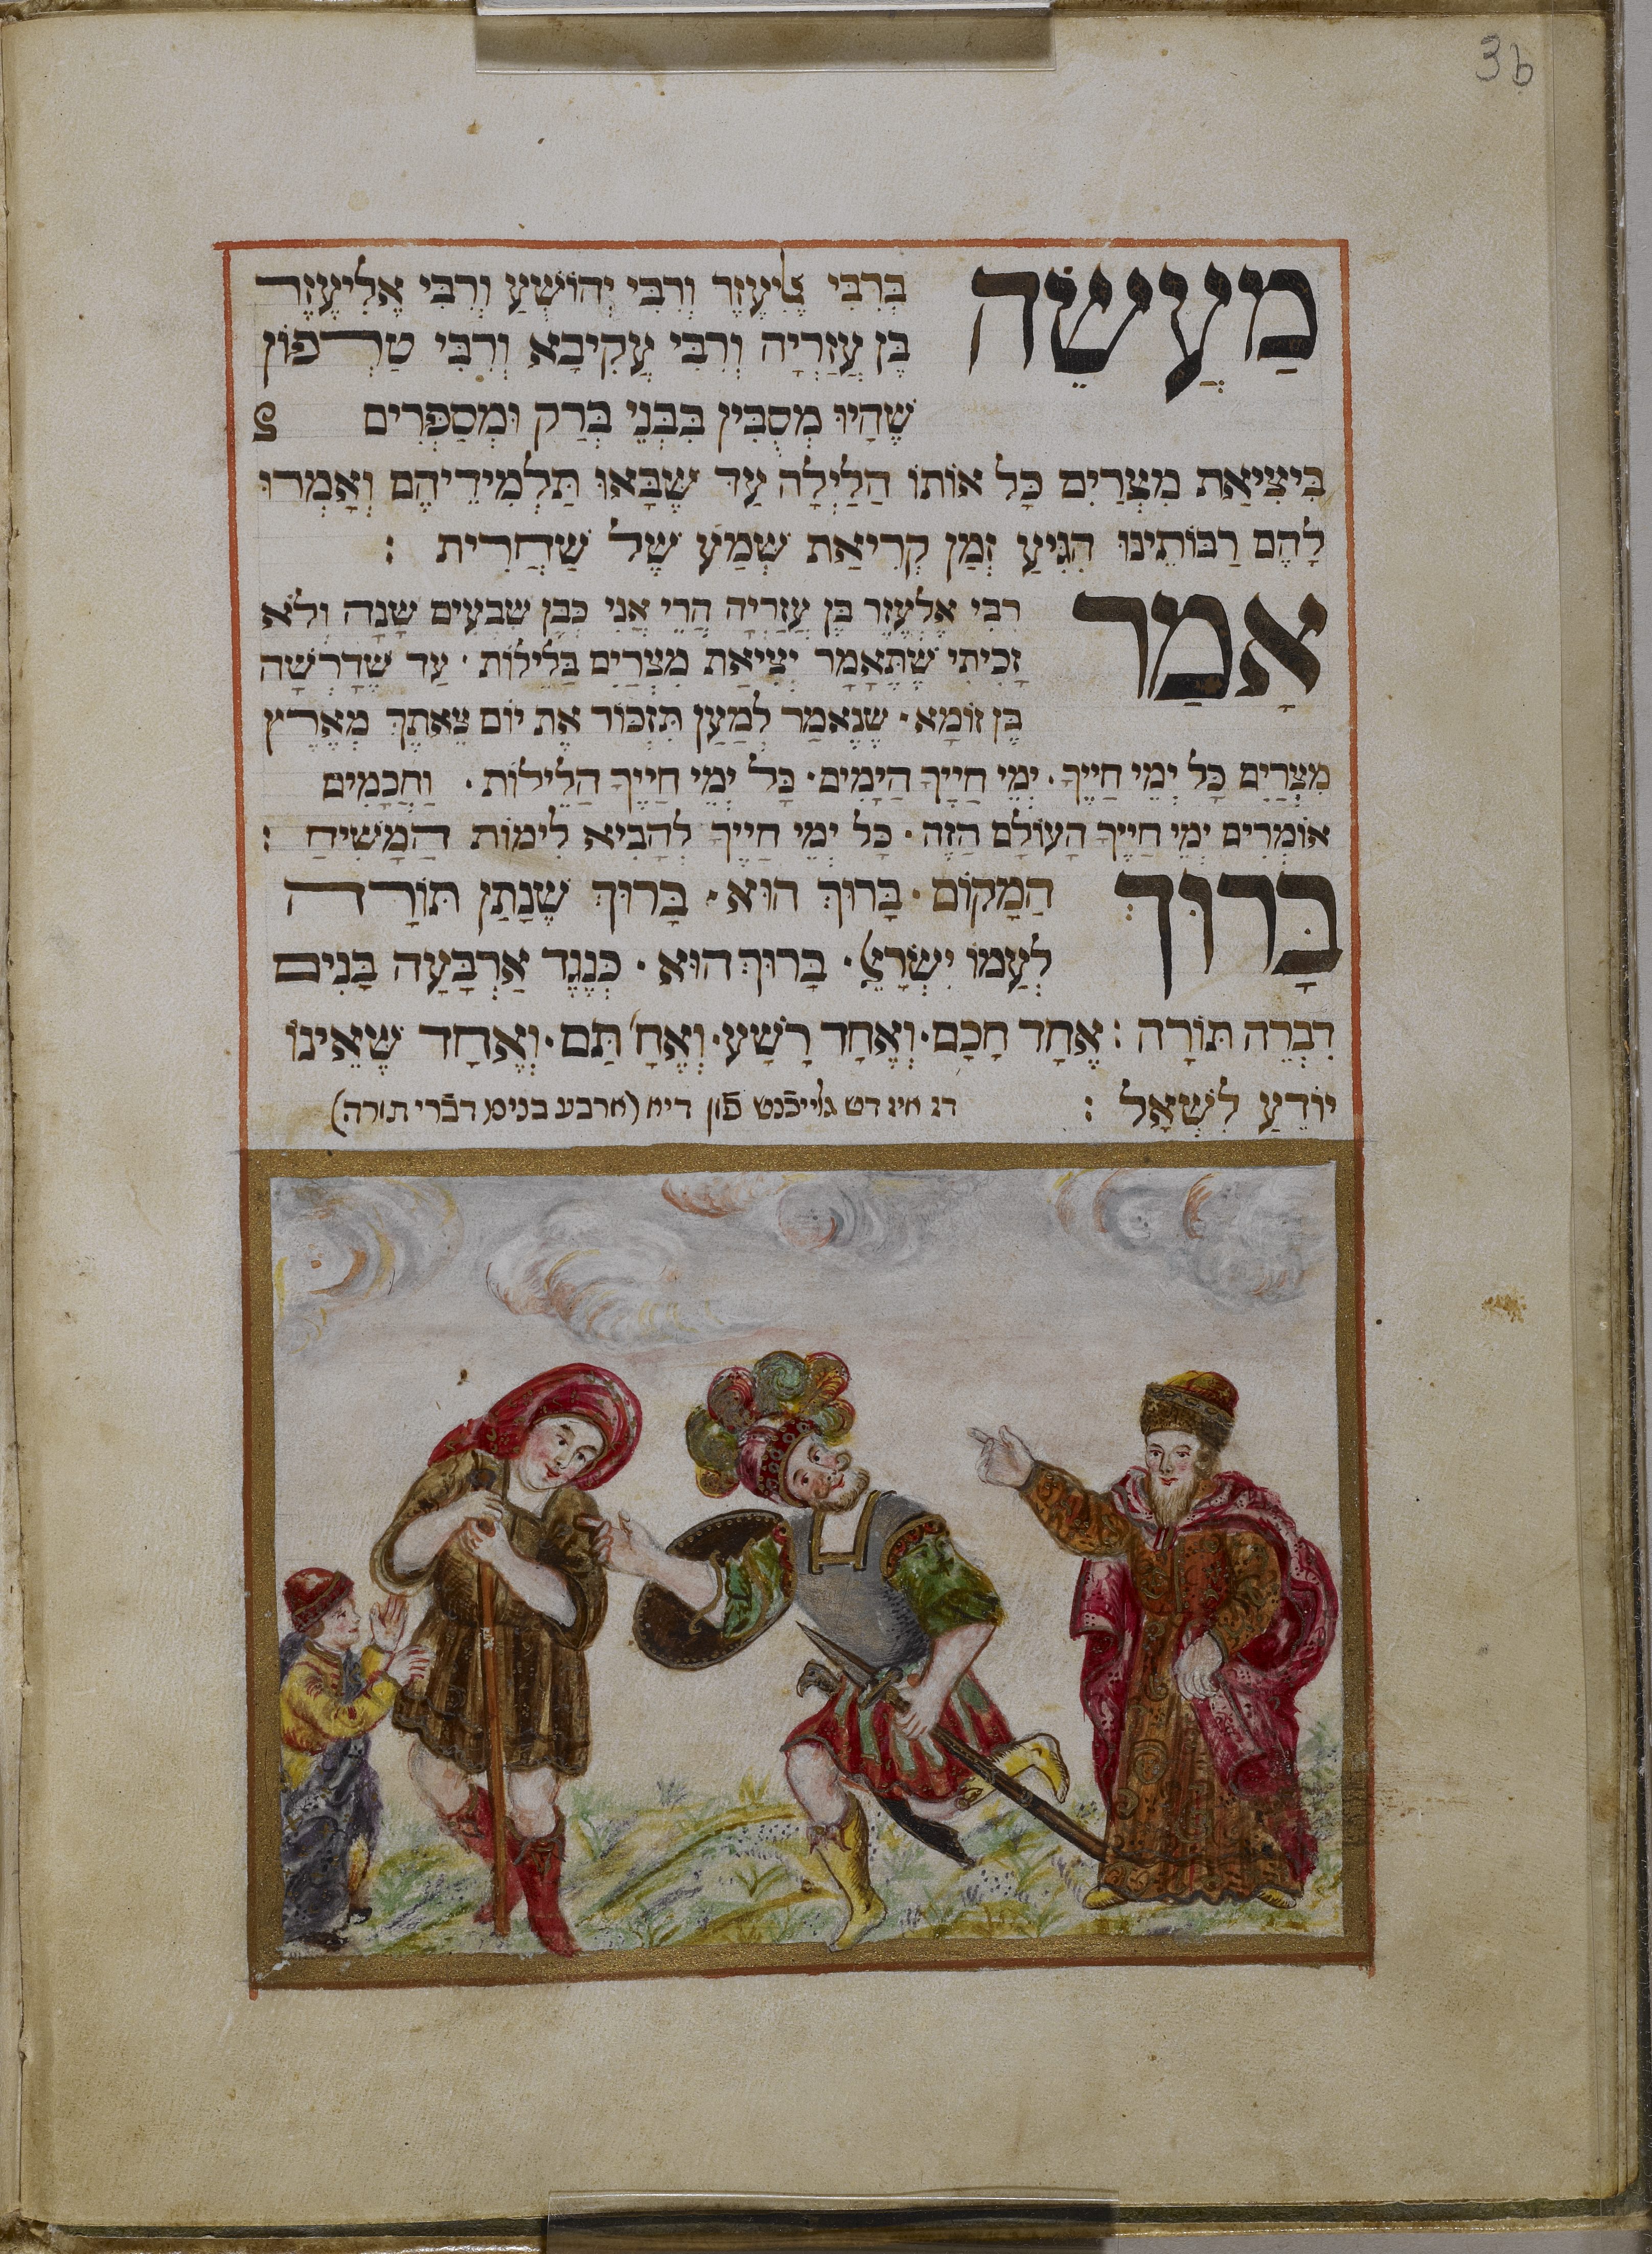 3b
מַעֲשֶׂה בְּרִבִּי אֱלִיעֶזֶר וְרִבִּי יְהוֹשֻׁעַ וְרִבִּי אֶלְיעֶזֶר
בֶּן עֲזַרְיָה וְרִבִּי עֲקִיבָא וְרִבִּי טַרְפוֹן
שֶׁהָיוּ מְסֻבִּין בִּבְנֵי בְּרַק וּמְסַפְּרִים
בִּיצִיאַת מִצְרַיִם כָּל אוֹתוֹ הַלַיְלָה עַד שֶׁבָּאוּ תַּלְמִידֵיהֶם וְאָמְרוּ
לָהֶם רַבּוֹתֵינוּ הִגִּיעַ זְמַן קְרִיאַת שְׁמַע שֶׁל שַׁחֲרִית :
אָמַר רִבִּי אֶלְעֶזֶר בֶּן עֲזַרְיָה הֲרֵי אֲנִי כְּבֶן שִׁבְעִים שָׁנָה וְלֹא
זָכִיתִי שֶׁתֵּאָמֵר יְצִיאַת מִצְרַיִם בַּלֵילוֹת · עַד שֶׁדְרָשָׁהּ
בֶּן זוֹמָא · שֶׁנֶאֱמַר לְמַעַן תִּזְכּוֹר אֶת יוֹם צֵאתְךָ מֵאֶרֶץ
מִצְרַיִם כָּל יְמֵי חַיֶיךָ · יְמֵי חַיֶיךָ הַיָמִים · כָּל יְמֵי חַיֶיךָ הַלֵילוֹת · וַחֲכָמִים
אוֹמְרִים יְמֵי חַיֶיךָ הָעוֹלָם הַזֶה · כָּל יְמֵי חַיֶיךָ לְהָבִיא לִימוֹת הַמָשִׁיחַ :
בָּרוּךְ הַמָקוֹם · בָּרוּךְ הוּא · בָּרוּךְ שֶׁנָתַן תּוֹרָה
לְעַמוֹ יִשְׂרָאֵל · בָּרוּךְ הוּא · כְּנֶגֶד אַרְבָּעָה בָּנִים
דִבְּרָה תּוֹרָה : אֶחָד חָכָם · וְאֶחָד רָשָׁע · וְאֶחָ' תַּם · וְאֶחָד שֶׁאֵינוֹ
יוֹדֵעַ לִשְׁאָל : דז אינ דש גלייכנט פון דיא (ארבע בנים דברי תורה)